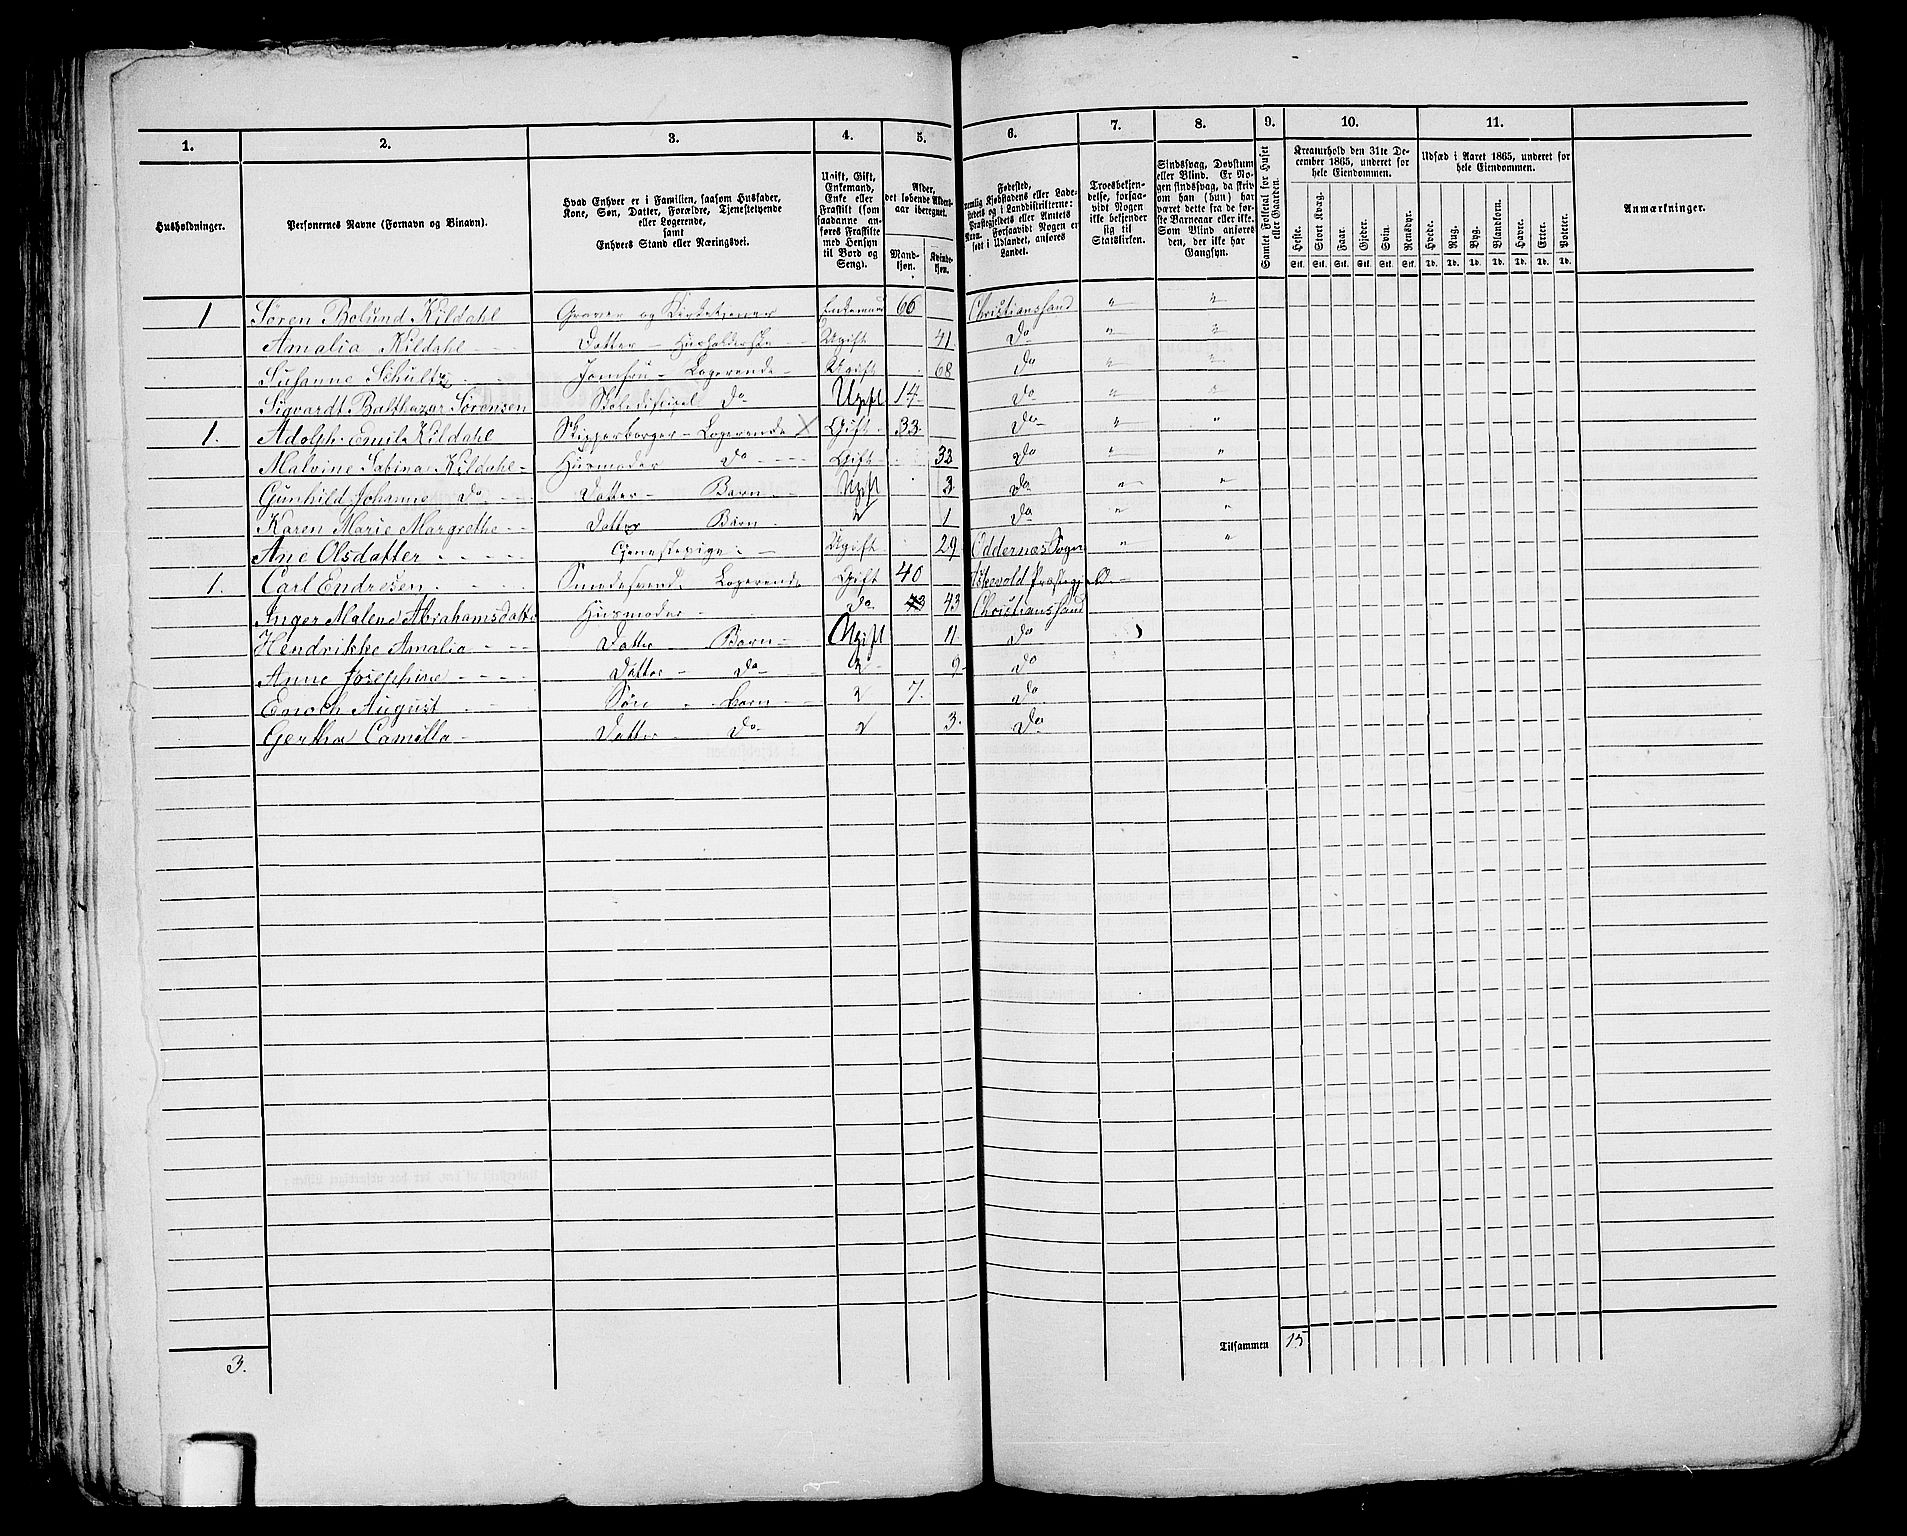 1. 2. 3. 4. 5. 6. 7. 8. 9. 10. 11.
Husholdninger.
Personernes Navne (Fornavn og Binavn).
Hvad Enhver er i Familien, saasom Husfader,
Kone, Søn, Datter, Forældre, Tjenestetyende
eller Logerende,
samt
Enhvers Stand eller Næringsvei.
Ugift, Gift,
Enkemand,
Enke eller
Fraskilt (som
saadanne an-
føres Fraskilte
med Hensyn
til Bord og
Seng).
Alder,
det løbende Alders-
aar iberegnet.
Mand-
kjøn.
Kvinde-
kjøn.
Fødested,
nemlig Kjøbstadens eller Lade-
stedets og i Landdistrikterne:
Præstegjeldets eller Amtets
Navn. Forsaavidt Nogen er
født i Udlandet, anføres
Landet.
Troesbekjen-
delse, forsaa-
vidt Nogen
ikke bekjender
sig til
Statskirken.
Sindssvag, Døvstum
eller Blind. Er No-
gen sindssvag, da skriv
om han (hun) har
været dette fra de før-
ste Barneaar eller ikke.
Som Blind anføres
den, der ikke har
Gangsyn.
Samlet Folketal for Huset
eller Gaarden.
Kreaturhold den 31te De-
cember 1865, underet for
hele Eiendommen.
Heste. Stort Kvæg. Faar. Gjeder. Svin. Rensdyr.
Stk. Stk. Stk. Stk. Stk. Stk.
Udsæd i Aaret 1865, underet for
hele Eiendommen.
Hvede. Rug. Byg. Blandkorn. Havre. Erter. Poteter.
Td. Td. Td. Td. Td. Td. Td.
Anmærkninger.
1 Søren Bolund Kildahl Graver og Kirketjener Enkemand 66 Christianssand " "
Amalia Kildahl Datter - Husholderske Ugift 41 Do " "
Susanne Schultz Jomfru - Logerende Ugift 68 Do " "
Sigvardt Balthazar Sørensen Skoledisipel Do Ugift 14 Do " "
1. Adolph Emil Kildahl Skipperborger - Logerende X Gift 33 Do " "
Malvine Sabina Kildahl Husmoder Do Gift 32 Do " "
Gunhild Johanne Do Datter - Barn Ugift 3 Do " "
Karen Marie Margrethe Datter Barn 1 Do " "
Ane Olsdatter Tjenestepige Ugift 29 Oddernes Sogn " "
1. Carl Endresen Smedesvend Logerende Gift 40 Præstegjeld
Inger Malene Abrahamsdatter Husmoder Do 43 43 Christianssand
Hendrikke Amalia Datter Barn Ugift 11 Do
Anne Josephine Datter Do 9 Do
Enoch August Søn Barn 7. Do
Gertha Camilla Datter Do 3. Do
3.
Tilsammen 15